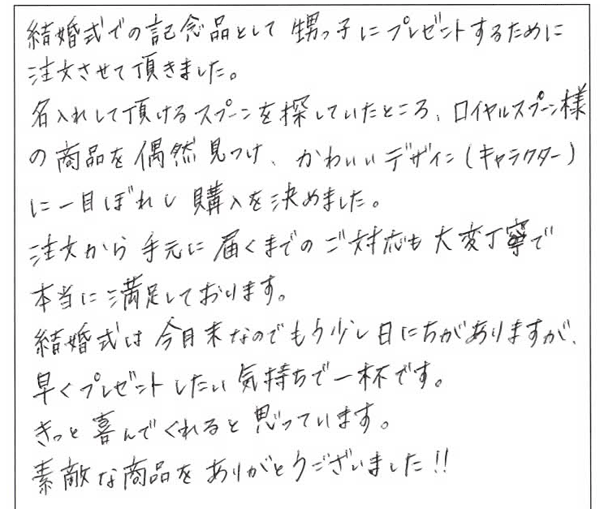 結婚式での記念品として甥っ子にプレゼントするために
注文させて頂きました。
名入れして頂けるスプーンを探していたところ、ロイヤルスプーン様
の商品を偶然見つけ、かわいいデザイン(キャラクター)
に一目ぼれし購入を決めました。
注文から手元に届くまでのご対応も大変丁寧で
本当に満足しております。
結婚式は今月末なのでもう少し日にちがありますが、
早くプレゼントしたい気持ちで一杯です。
きっと喜んでくれると思っています。
素敵な商品をありがとうございました!!